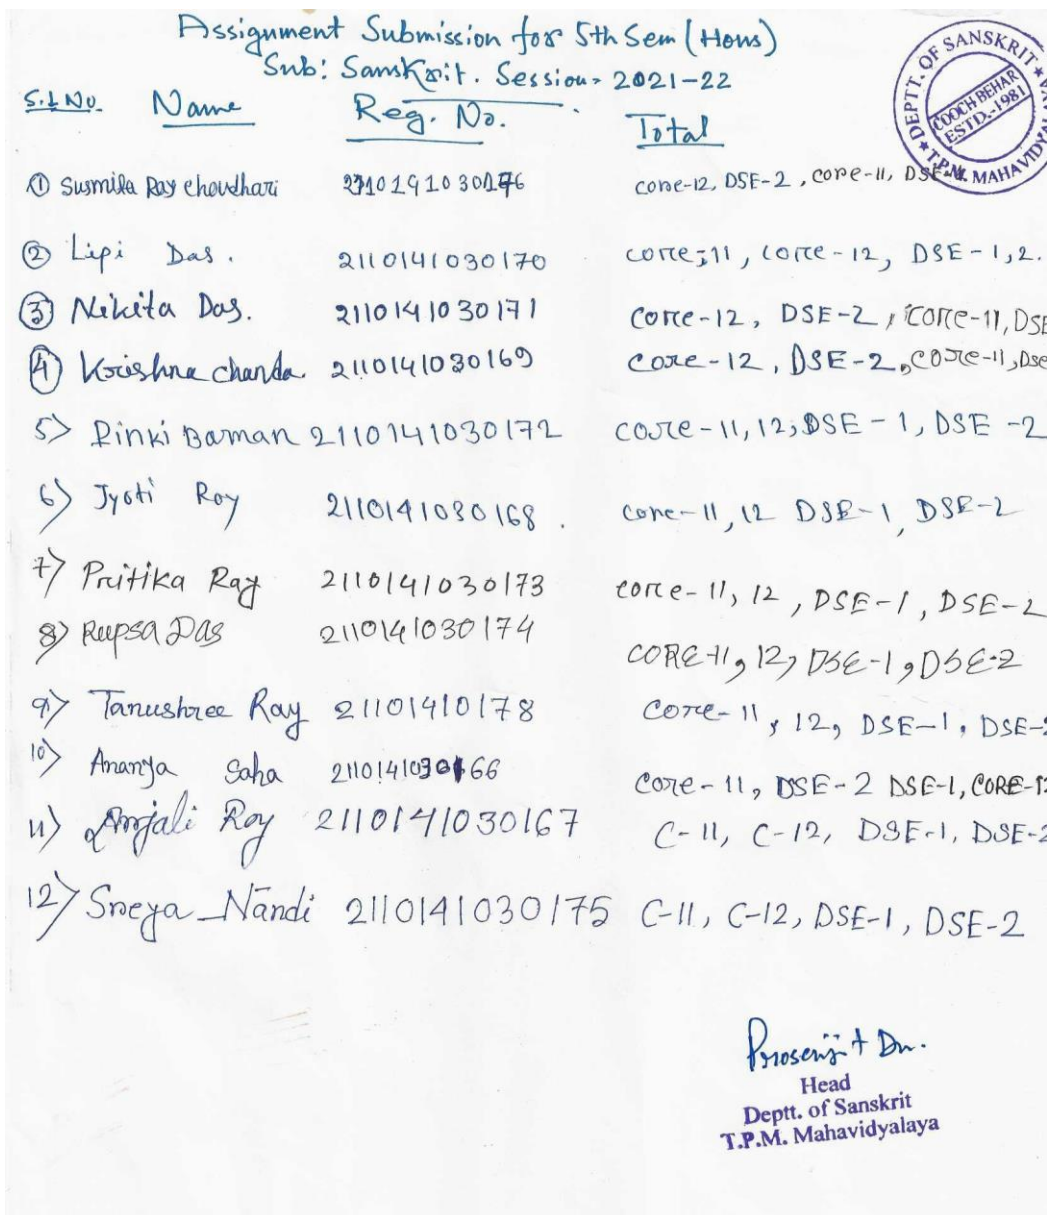 Assignment Submission for 5th Sem (Hons)
Sub: Sanskrit. Session- 2021-22
DEPTT. OF SANSKRIT
COOCH BEHAR
ESTD.-1981
T.P.M. MAHAVIDYAL
S.L No. Name Reg. No. Total
① Susmita Ray Choudhari core-12, DSE-2, core-11,
② Lipi Das. 2110141030170 core-11, core-12, DSE-1,2.
③ Nikita Das. 2110141030171 core-12, DSE-2, core-11, DSE
④ Krishna chanda 2110141030169 core-12, DSE-2, core-11, Dse
5> Rinki Barman 2110141030172 core-11,12, DSE-1, DSE-2
6> Jyoti Roy 2110141030168. core-11,12 DSE-1, DSE-2
7> Pritika Ray 2110141030173 core-11, 12, DSE-1, DSE-2
8> Rupsa Das 2110141030174 CORE-11, 12, DSE-1, DSE-2
9> Tanushree Ray 21101410178 core-11, 12, DSE-1, DSE-2
10> Ananya Saha 2110141030166 core-11, DSE-2 DSE-1, CORE-12
11> Anjali Roy 2110141030167 C-11, C-12, DSE-1, DSE-2
12> Sneya Nandi 2110141030175 C-11, C-12, DSE-1, DSE-2
Prosenjit
Head
Deptt. of Sanskrit
T.P.M. Mahavidyalaya